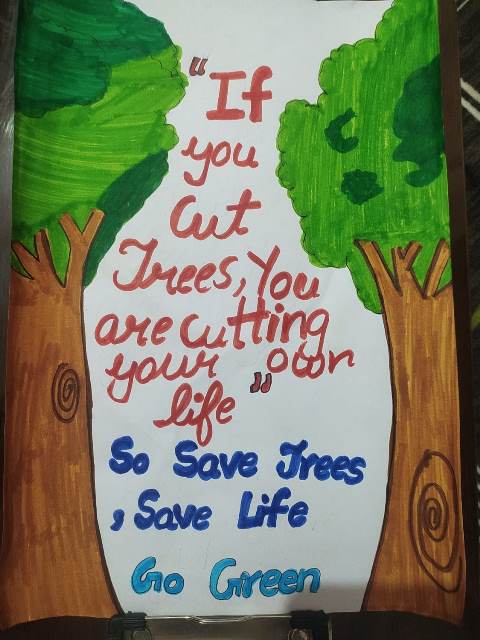 "If
you
Cut
Trees, You
are cutting
your own
life"
So Save Trees
, Save Life
Go Green